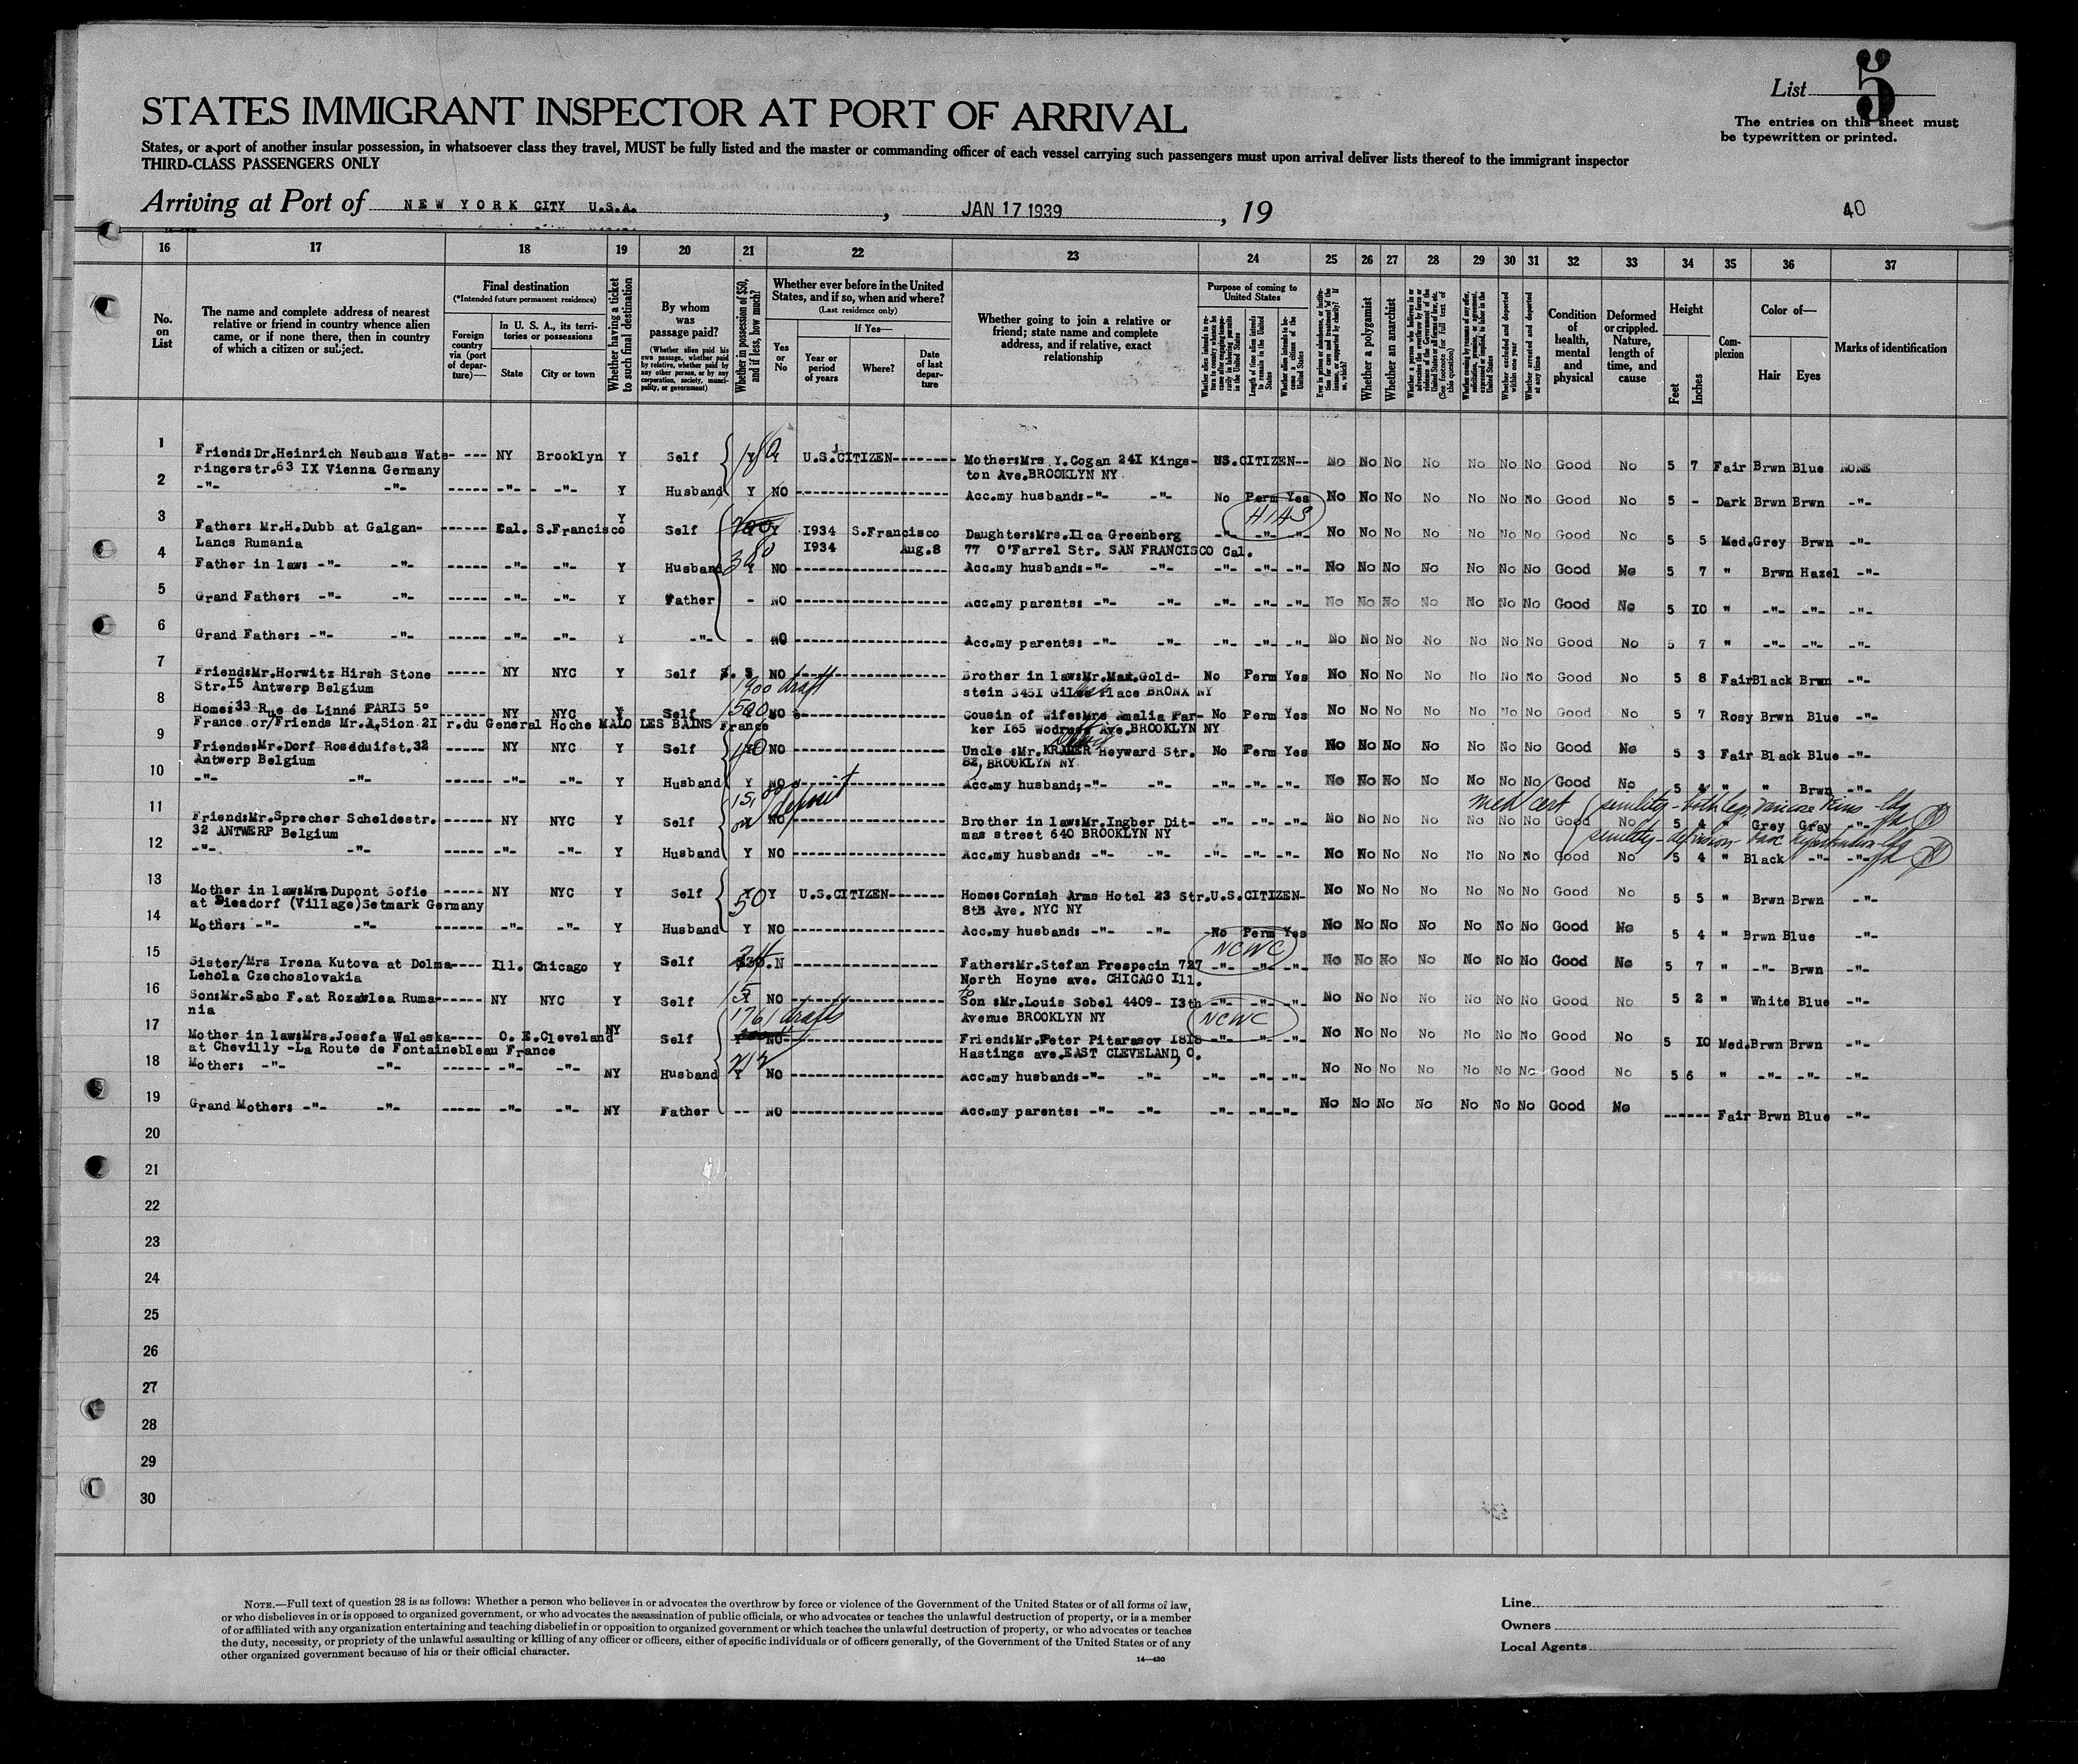 List 5
STATES IMMIGRANT INSPECTOR AT PORT OF ARRIVAL
The entries on this sheet must
be typewritten or printed.
States, or a port of another insular possession, in whatsoever class they travel, MUST be fully listed and the master or commanding officer of each vessel carrying such passengers must upon arrival deliver lists thereof to the immigrant inspector
THIRD-CLASS PASSENGERS ONLY
Arriving at Port of NEW YORK CITY U.S.A. , JAN 17 1939 , 19
40
16 17 18 19 20 21 22 23 24 25 26 27 28 29 30 31 32 33 34 35 36 37
No. on List
The name and complete address of nearest relative or friend in country whence alien came, or if none there, then in country of which a citizen or subject.
Final destination
(*Intended future permanent residence)
Foreign country via (port of departure)—
In U. S. A., its territories or possessions
State
City or town
Whether having a ticket to such final destination
By whom was passage paid?
(Whether alien paid his own passage, whether paid by relative, whether paid by any other person, or by any corporation, society, municipality, or government)
Whether in possession of $50, and if less, how much?
Whether ever before in the United States, and if so, when and where?
(Last residence only)
Yes or No
If Yes—
Year or period of years
Where?
Date of last departure
Whether going to join a relative or friend; state name and complete address, and if relative, exact relationship
Purpose of coming to United States
Length of time alien intends to remain in the United States
Whether alien intends to become a citizen of the United States
Whether a polygamist
Whether an anarchist
Whether excluded and deported within one year
Whether arrested and deported at any time
Condition of health, mental and physical
Deformed or crippled. Nature, length of time, and cause
Height
Feet
Inches
Complexion
Color of—
Hair
Eyes
Marks of identification
1 Friend:Dr.Heinrich Neubaus Wate- --- NY Brooklyn Y Self Y Y U.S.CITIZEN-------- Mother:Mrs Y.Cogan 24I Kings- US.CITIZEN-- No No No No No No No Good No 5 7 Fair Brwn Blue NONE
ringerstr.63 IX Vienna Germany ton Ave.BROOKLYN NY
2 -"- -"- ----- -"- - -"- Y Husband Y NO -------------------- Acc.my husband:-"- -"- No Perm Yes No No No No No No No Good No 5 - Dark Brwn Brwn -"-
HIAS
3 Father: Mr.H.Dubb at Galgan- ------ Cal. S.Francisco Y Self Y I934 S.Francisco Daughter:Mrs.Ilca Greenberg -"- -"- -"- No No No No No No No Good No 5 5 Med.Grey Brwn -"-
Lancs Rumania I934 Aug.8 77 O'Farrel Str. SAN FRANCISCO Cal.
380
4 Father in law: -"- -"- ----- -"- -"- Y Husband Y NO -------------------- Acc.my husband:-"- -"- -"- -"- -"- No No No No No No No Good No 5 7 " Brwn Hazel -"-
5 Grand Father: -"- -"- ----- -"- -"- Y Father - NO -------------------- Acc.my parents: -"- -"- -"- -"- -"- No No No No No No No Good No 5 IO " -"- -"- -"-
6 Grand Father: -"- -"- ----- -"- -"- Y -"- - NO -------------------- Acc.my parents: -"- -"- -"- -"- -"- No No No No No No No Good No 5 7 " -"- -"- -"-
7 Friend:Mr.Horwitz Hirsh Stone ----- NY NYC Y Self $. 5 NO -------------------- Brother in law:Mr.Max.Gold- No Perm Yes No No No No No No No Good No 5 8 FairBlack Brwn -"-
Str.I5 Antwerp Belgium 1900 draft stein 345I Place BRONX NY
8 Home:33 Rue de Linné PARIS 5° ----- NY NYC Y Self 1500 NO -------------------- Cousin of wife:Mrs Amalia Par- No Perm Yes No No No No No No No Good No 5 7 Rosy Brwn Blue -"-
France or/Friends Mr.A.Sion 2I r.du General Hoche MALO LES BAINS France ker I65 Ave.BROOKLYN NY
9 Friends:Mr.Dorf Rosdduifst.32 ----- NY NYC Y Self 40 NO -------------------- Uncle :Mr.KRAMER Heyward Str. No Perm Yes No No No No No No No Good No 5 3 Fair Black Blue -"-
Antwerp Belgium 82, BROOKLYN NY
10 -"- -"- ------ -"- -"- Y Husband Y NO Acc.my husband;-"- -"- -"- -"- -"- No No No No No No No Good No 5 4 " " Brwn -"-
15,00 deposit
med cert senility - both legs varicose veins
11 Friend:Mr.Sprecher Scheldestr. ----- NY NYC Y Self NO -------------------- Brother in law:Mr.Ingber Dit- -"- -"- -"- No No No No No No No Good No 5 4 " Grey Grey -"-
32 ANTWERP Belgium mas street 640 BROOKLYN NY
senility
12 -"- -"- ----- -"- -"- Y Husband Y NO -------------------- Acc.my husband: -"- -"- -"- -"- -"- No No No No No No No Good No 5 4 " Black -"- -"-
13 Mother in law:Mrs Dupont Sofie ----- NY NYC Y Self 50 Y U.S.CITIZEN------- Home:Cornish Arms Hotel 23 Str.U.S.CITIZEN- No No No No No No No Good No 5 5 " Brwn Brwn -"-
at Diesdorf (Village)Setmark Germany 8th Ave. NYC NY
14 Mother: -"- -"- ------ -"- -"- Y Husband Y NO -------------------- Acc.my husband: -"- -"- -No Perm Yes No No No No No No No Good No 5 4 " Brwn Blue -"-
NCWC
15 Sister/Mrs Irena Kutova at Dolma---- Ill. Chicago Y Self N -------------------- Father:Mr.Stefan Prespecin 727 -"- -"- -"- No No No No No No No Good No 5 7 " -"- Brwn -"-
Lehola Czechoslovakia North Hoyne ave. CHICAGO Ill.
16 Son:Mr.Sabo F.at Rozavlea Ruma------- NY NYC Y Self NO -------------------- Son :Mr.Louis Sobel 4409- I3th -"- -"- -"- No No No No No No No Good No 5 2 " White Blue -"-
nia 1761 drafts Avenue BROOKLYN NY NCWC
17 Mother in law:Mrs.Josefa Waleska---- O. E.Cleveland NY Self Y NO -------------------- Friend:Mr.Peter Pitarasov I8I8 -"- -"- -"- No No No No No No No Good No 5 IO Med.Brwn Brwn -"-
at Chevilly -La Route de Fontainebleau France 212 Hastings ave.EAST CLEVELAND, O.
18 Mother: -"- -"- ------ -"- -"- NY Husband Y NO -------------------- Acc.my husband:-"- -"- -"- -"- -"- No No No No No No No Good No 5 6 " -"- -"- -"-
19 Grand Mother: -"- -"- ----- -"- -"- NY Father -- NO -------------------- Acc.my parents: -"- -"- -"- -"- -"- No No No No No No No Good No ------ Fair Brwn Blue -"-
20
21
22
23
24
25
26
27
28
29
30
NOTE.—Full text of question 28 is as follows: Whether a person who believes in or advocates the overthrow by force or violence of the Government of the United States or of all forms of law,
or who disbelieves in or is opposed to organized government, or who advocates the assassination of public officials, or who advocates or teaches the unlawful destruction of property, or is a member
of or affiliated with any organization entertaining and teaching disbelief in or opposition to organized government or which teaches the unlawful destruction of property, or who advocates or teaches
the duty, necessity, or propriety of the unlawful assaulting or killing of any officer or officers, either of specific individuals or of officers generally, of the Government of the United States or of any
other organized government because of his or their official character.
14—430
Line
Owners
Local Agents